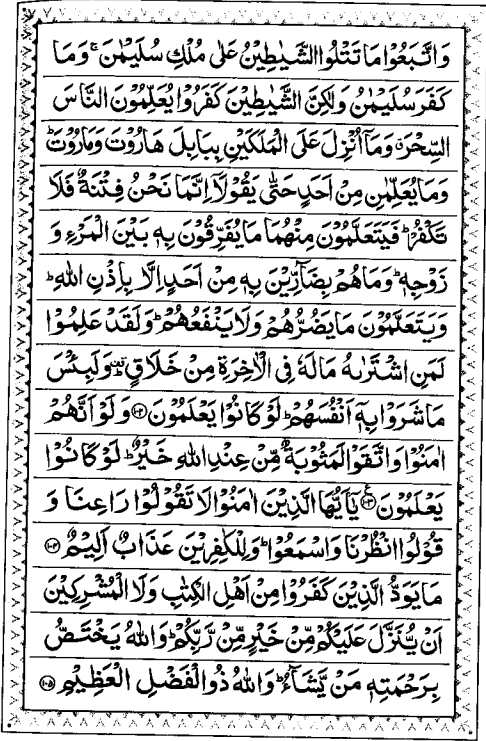 وَاتَّبَعُوْا مَا تَتْلُوا الشَّيٰطِيْنُ عَلٰى مُلْكِ سُلَيْمٰنَ ۚ وَمَا
كَفَرَ سُلَيْمٰنُ وَلٰكِنَّ الشَّيٰطِيْنَ كَفَرُوْا يُعَلِّمُوْنَ النَّاسَ
السِّحْرَ ۗ وَمَاۤ اُنْزِلَ عَلَى الْمَلَكَيْنِ بِبَابِلَ هَارُوْتَ وَمَارُوْتَ ؕ
وَمَا يُعَلِّمٰنِ مِنْ اَحَدٍ حَتّٰى يَقُوْلَاۤ اِنَّمَا نَحْنُ فِتْنَةٌ فَلَا
تَكْفُرْ ؕ فَيَتَعَلَّمُوْنَ مِنْهُمَا مَا يُفَرِّقُوْنَ بِهٖ بَيْنَ الْمَرْءِ وَ
زَوْجِهٖ ؕ وَمَا هُمْ بِضَآرِّيْنَ بِهٖ مِنْ اَحَدٍ اِلَّا بِاِذْنِ اللّٰهِ ؕ
وَيَتَعَلَّمُوْنَ مَا يَضُرُّهُمْ وَلَا يَنْفَعُهُمْ ؕ وَلَقَدْ عَلِمُوْا
لَمَنِ اشْتَرٰىهُ مَا لَهٗ فِى الْاٰخِرَةِ مِنْ خَلَاقٍ ؕ وَلَبِئْسَ
مَا شَرَوْا بِهٖۤ اَنْفُسَهُمْ ؕ لَوْ كَانُوْا يَعْلَمُوْنَ ﴿۱۰۲﴾ وَلَوْ اَنَّهُمْ
اٰمَنُوْا وَاتَّقَوْا لَمَثُوْبَةٌ مِّنْ عِنْدِ اللّٰهِ خَيْرٌ ؕ لَوْ كَانُوْا
يَعْلَمُوْنَ ﴿۱۰۳﴾ يٰۤاَيُّهَا الَّذِيْنَ اٰمَنُوْا لَا تَقُوْلُوْا رَاعِنَا وَ
قُوْلُوا انْظُرْنَا وَاسْمَعُوْا ؕ وَلِلْكٰفِرِيْنَ عَذَابٌ اَلِيْمٌ ﴿۱۰۴﴾
مَا يَوَدُّ الَّذِيْنَ كَفَرُوْا مِنْ اَهْلِ الْكِتٰبِ وَلَا الْمُشْرِكِيْنَ
اَنْ يُّنَزَّلَ عَلَيْكُمْ مِّنْ خَيْرٍ مِّنْ رَّبِّكُمْ ؕ وَاللّٰهُ يَخْتَصُّ
بِرَحْمَتِهٖ مَنْ يَّشَآءُ ؕ وَاللّٰهُ ذُو الْفَضْلِ الْعَظِيْمِ ﴿۱۰۵﴾